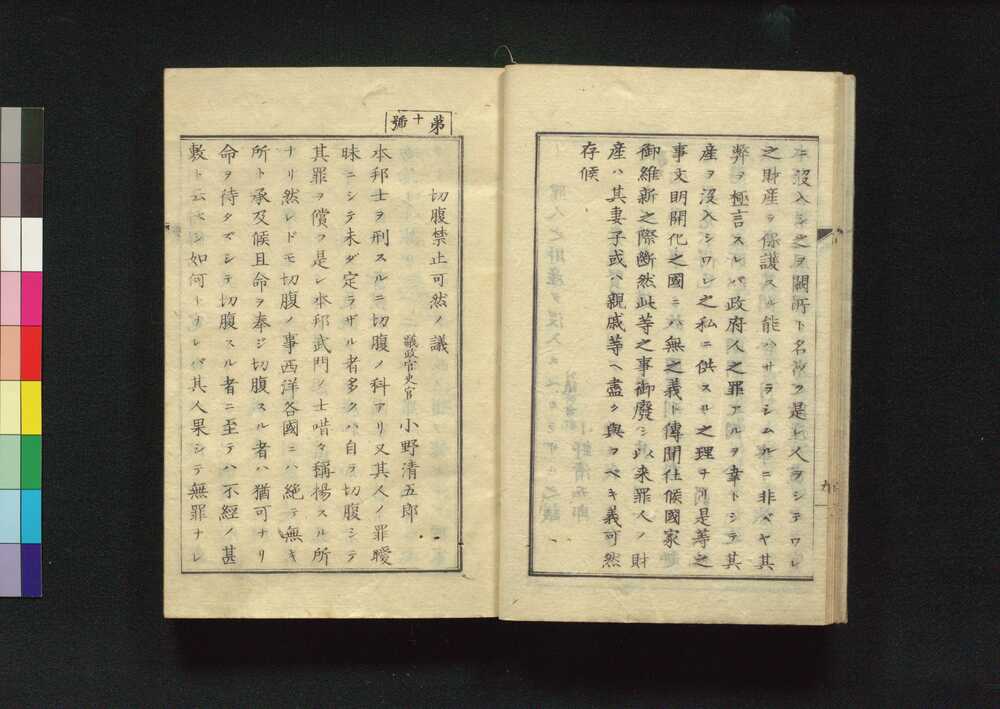 ニ没入シ之ヲ闕所ト名ツク是レ人ヲシテワレ
之財産ヲ保護スル能ハサラシムルニ非ズヤ其
弊ヲ極言スレバ政府人之罪アルヲ幸トシテ其
産ヲ没入シワレ之私ニ供スル之理ナリ是等之
事文明開化之國ニハ無之義ト傳聞仕候國家
御維新之際断然此等之事御廢シ以来罪人ノ財
産ハ其妻子或ハ親戚等ヘ盡ク與フベキ義可然
存候
第十號
切腹禁止可然ノ議
議政官史官 小野清五郎
本邦士ヲ刑スルニ切腹ノ科アリ又其人ノ罪曖
昧ニシテ未ダ定ラザル者多クハ自ラ切腹シテ
其罪ヲ償フ是レ本邦武門ノ士嘖々稱揚スル所
ナリ然レドモ切腹ノ事西洋各國ニハ絶テ無キ
所ト承及候且命ヲ奉ジ切腹スル者ハ猶可ナリ
命ヲ待タズシテ切腹スル者ニ至テハ不經ノ甚
敷ト云ベシ如何トナレバ其人果シテ無罪ナレ